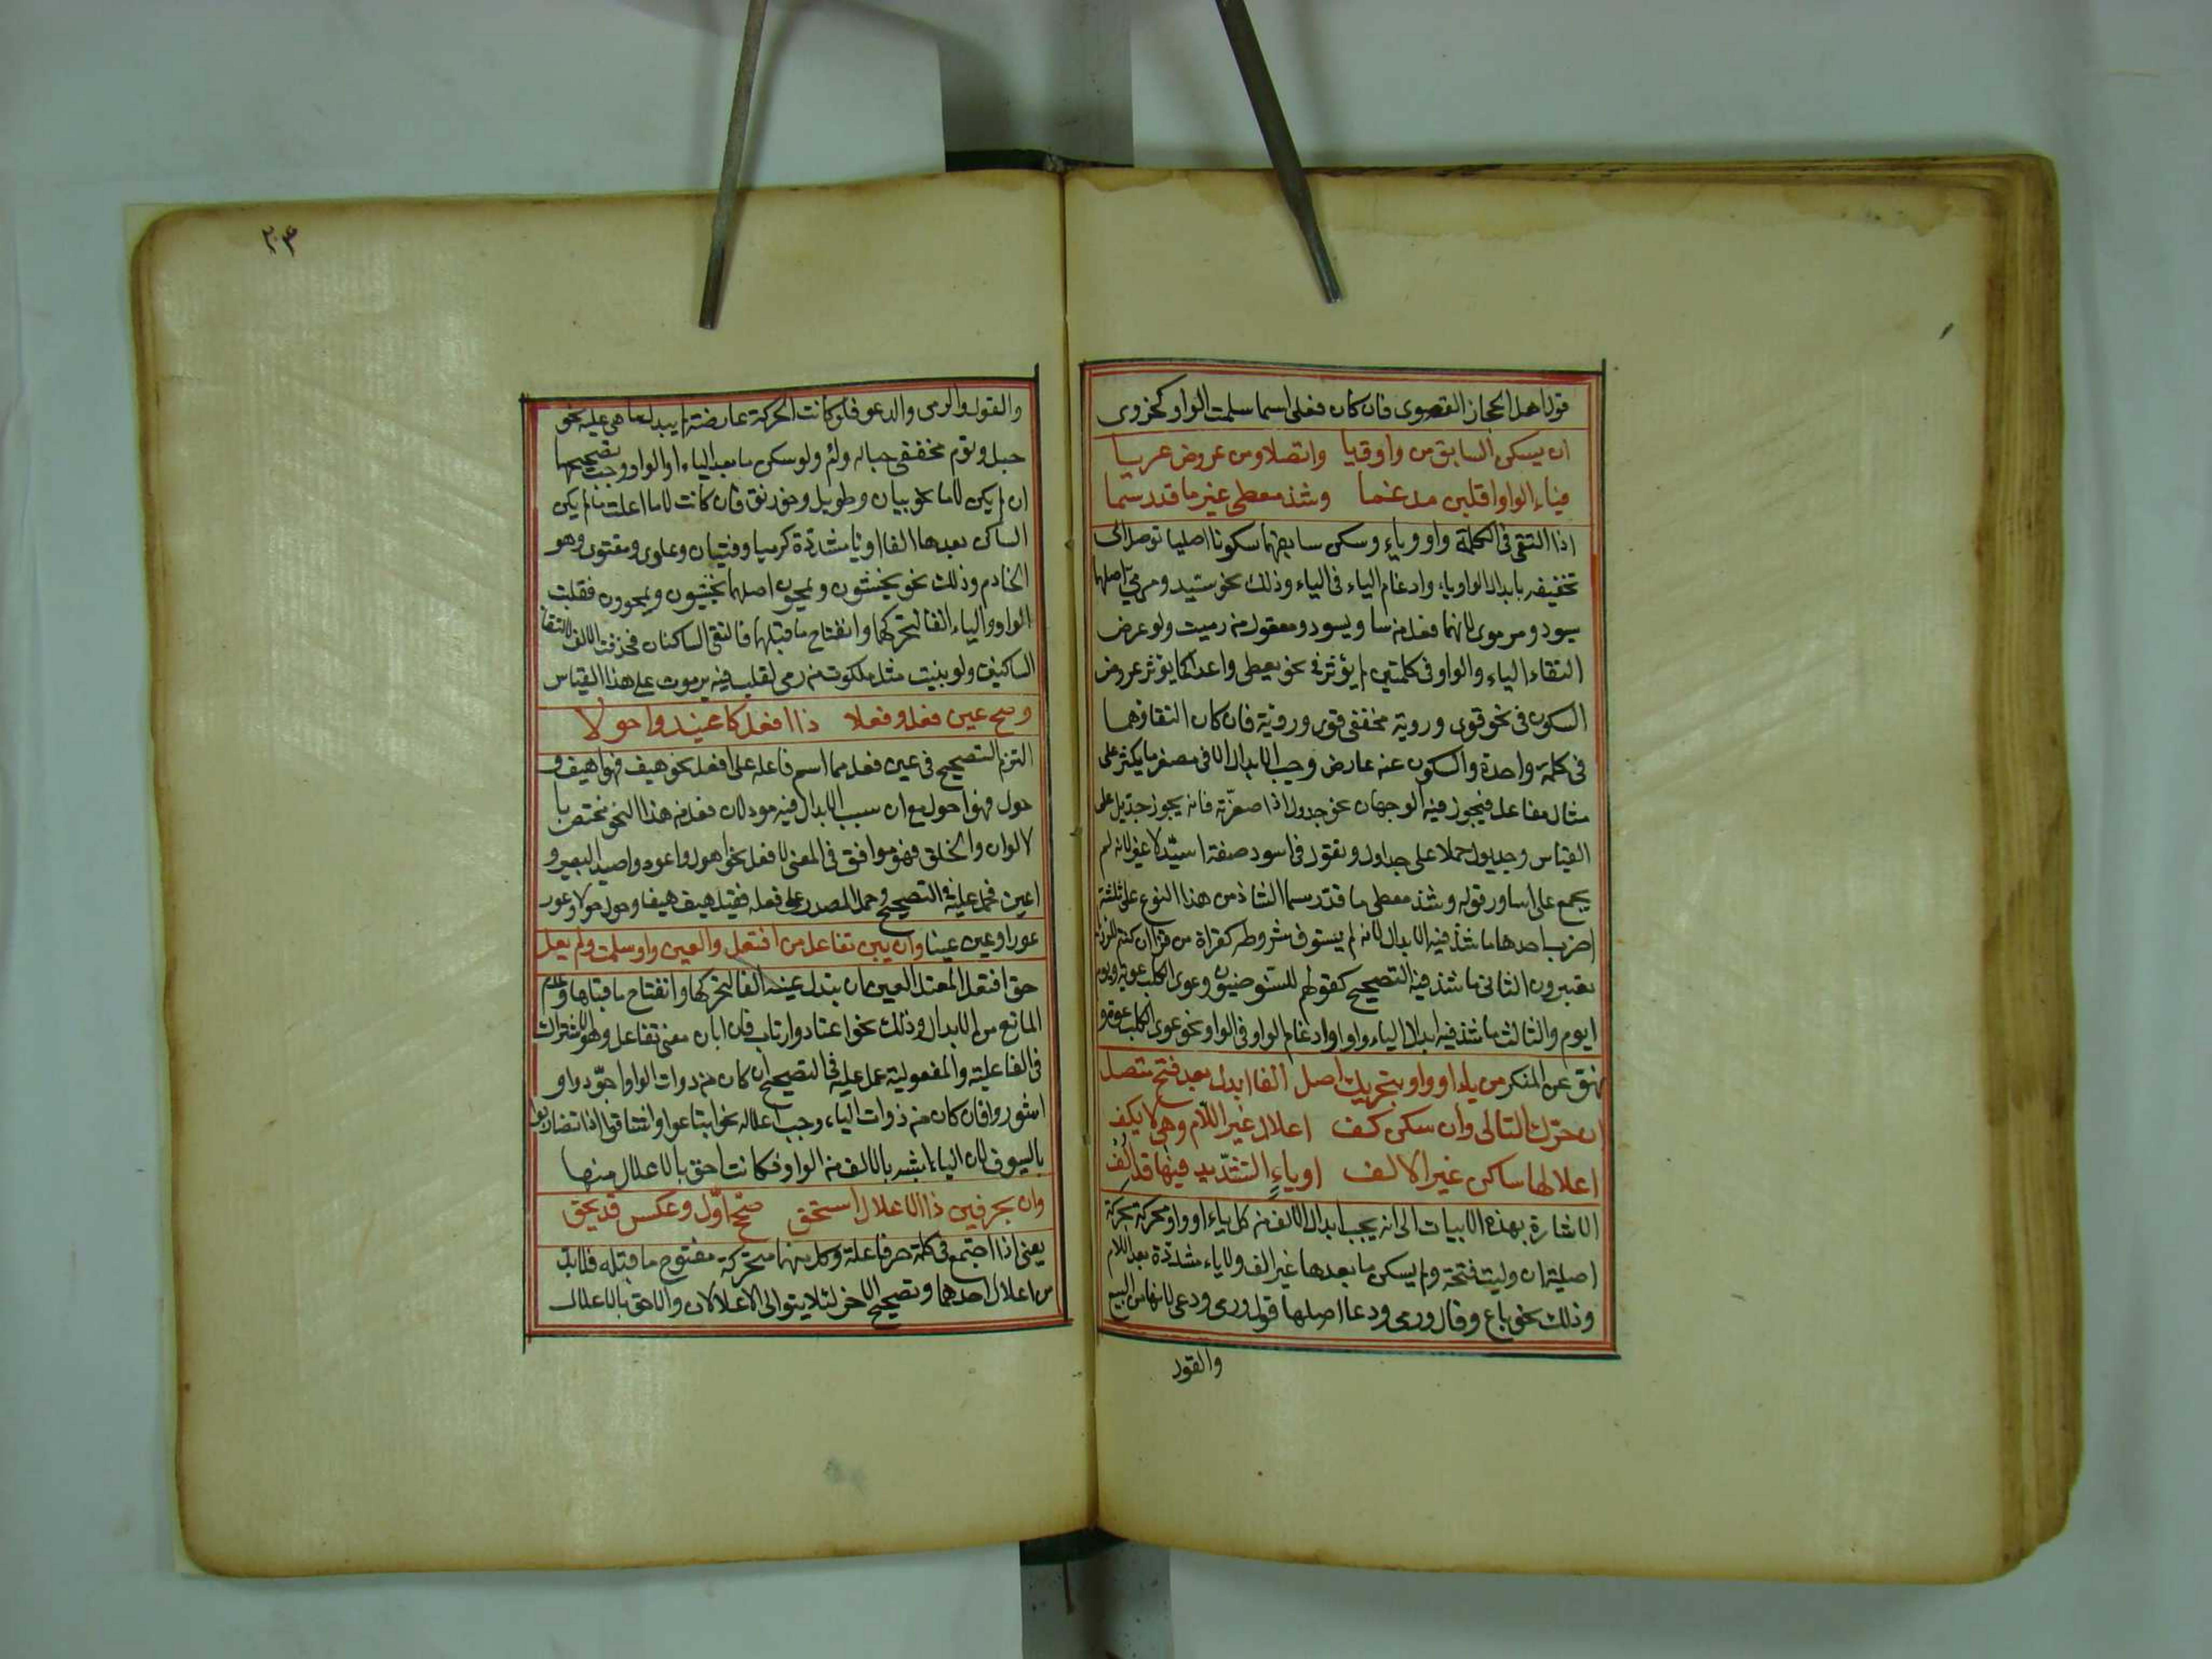 قول اهل الحجاز القصوى فان كان فعلى اسما سلمت الواو كحزوى
ان يسكن السابق من واو ويا واتصلا ومن عروض عريا
فياء الواو اقلبن مدغما وشذ معطى غير ما قد رسما
اذا التقى فى الكلمة واو وياء وسكن سابقهما سكونا اصليا توصل الى
تخفيفه بابدال الواو ياء وادغام الياء فى الياء وذلك نحو سيد ومرمي اصلهما
سيود ومرموى لانهما فعل من ساد يسود ومفعول من رميت ولو عرض
التقاء الياء والواو فى كلمتين لم يؤثر نحو يعطى واعد كما يؤثر عروض
السكون فى نحو قوى وروية مخففى قوى وروئية فان كان التقاؤهما
فى كلمة واحدة والسكون عنه عارض وجب الابدال الا فى مصغر ما يكثر على
مثال مفاعل فيجوز فيه الوجهان نحو جدول اذا صغرته فانه يجوز جديل على
القياس وجديول حملا على جداول وتقول فى اسود صفة اسيد لا غير لانه لم
يجمع على اساود قوله وشذ معطى ما قد رسما الشاذ من هذا النوع على ثلثة
اضرب احدها ما شذ فيه الابدال لانه لم يستوف شروطه كقراة من قرا ان كنتم للريا
تعبرون الثانى ما شذ فيه التصحيح كقولهم للسنور ضيون وعوى الكلب عوية ويوم
ايوم والثالث ما شذ فيه ابدال الياء واوا وادغام الواو فى الواو نحو عوى الكلب عوة و
نهو عن المنكر من ياء او واو بتحريك اصل الفا ابدل بعد فتح متصل
ان حرك التالى وان سكن كف اعلال غير اللام وهى لا يكف
اعلالها ساكن غير الالف او ياء التشديد فيها قد الف
الاشارة بهذه الابيات الى انه يجب ابدال الالف من كل ياء او واو محركة بحركة
اصلية ان وليت فتحة ولم يسكن ما بعدها غير الف ولا ياء مشددة بعد اللام
وذلك نحو باع وقال ورمى ودعا اصلها قول ورمى ودعى لانها من البيع
والقول
٢٠٣
والقول والرمى والدعو فلو كانت الحركة عارضة لم يبدل ما هى عليه نحو
جيل وتوم مخففى جيال وتؤم ولو سكن ما بعد الياء او الواو وجب تصحيحها
ان لم يكن لاما نحو بيان وطويل وخورنق فان كانت لاما اعلت ما لم يكن
الساكن بعدها الفا او يا مشددة كرميا وفتيان وعلوى ومقتوى وهو
الخادم وذلك نحو يخشون ويمحون اصلهما يخشيون ويمحوون فقلبت
الواو والياء الفا لتحركهما وانفتاح ما قبلهما فالتقى الساكنان فحذفت الالف لالتقا
الساكنين ولو بنيت مثل ملكوت من رمى لقلت فيه رموت على هذا القياس
وصح عين فعل وفعلا ذا افعل كاغيد واحولا
التزم التصحيح فى عين فعل مما اسم فاعله على افعل نحو هيف فهو اهيف و
حول فهو احول مع ان سبب الابدال فيه موجود لان فعل من هذا النحو مختص با
لالوان والخلق فهو موافق فى المعنى لافعل نحو احول واعور واصيد البعير و
اعين فحمل عليه فى التصحيح وحمل المصدر على فعله فقيل هيف هيفا وحول حولا وعور
عورا وعين عينا وان يبن تفاعل من افتعل والعين واو سلمت ولم يعل
حق افتعل المعتل العين ان تبدل عينه الفا لتحركها وانفتاح ما قبلها وعدم
المانع من الابدال وذلك نحو اعتاد وارتاب فان ابان معنى تفاعل وهو الاشتراك
فى الفاعلية والمفعولية حمل عليه فى التصحيح ان كان من ذوات الواو نحو اجتوروا و
اشتوروا فان كان من ذوات الياء وجب اعلاله نحو ابتاعوا واستافوا اذا تضاربوا
بالسيوف لان الياء اشبه بالالف من الواو فكانت احق بالاعلال منها
وان بحرفين ذا الاعلال استحق صحح اول وعكس قد يحق
يعنى اذا اجتمع فى كلمة حرفا علة وكل منهما متحركة مفتوح ما قبله فلا بد
من اعلال احدهما وتصحيح الاخر لئلا يتوالى الاعلالان والاحق بالاعلال